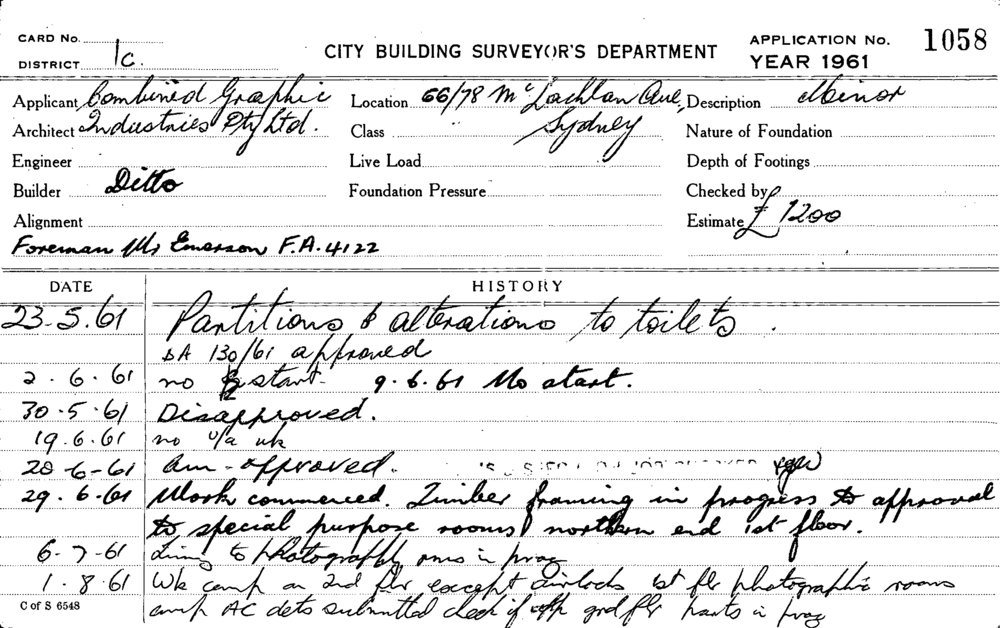 CARD No. CITY BUILDING SURVEYOR'S DEPARTMENT APPLICATION No. 1058
DISTRICT 1c. YEAR 1961
Applicant Combined Graphic Location 66/78 McLachlan Ave, Description Minor
Architect Industries Pty Ltd. Class Sydney Nature of Foundation
Engineer Live Load Depth of Footings
Builder Ditto Foundation Pressure Checked by
Alignment Estimate £1200
Foreman Mr Emerson F.A. 4122
DATE HISTORY
23-5.61 Partitions & alterations to toilets.
DA 130/61 approved
2.6.61 no start- 9.6.61 No start.
30-5.61 Disapproved.
19.6.61 no u/a wk
28-6-61 Am-approved.
29.6.61 Work commenced. Timber framing in progress to approval
to special purpose rooms northern end 1st floor.
6-7-61 Lining to photography rms in prog
1.8.61 Wk comp on 2nd flr except airlocks 1st flr photographic rooms
comp AC dets submitted check if app grd flr parts in prog
C of S 6548